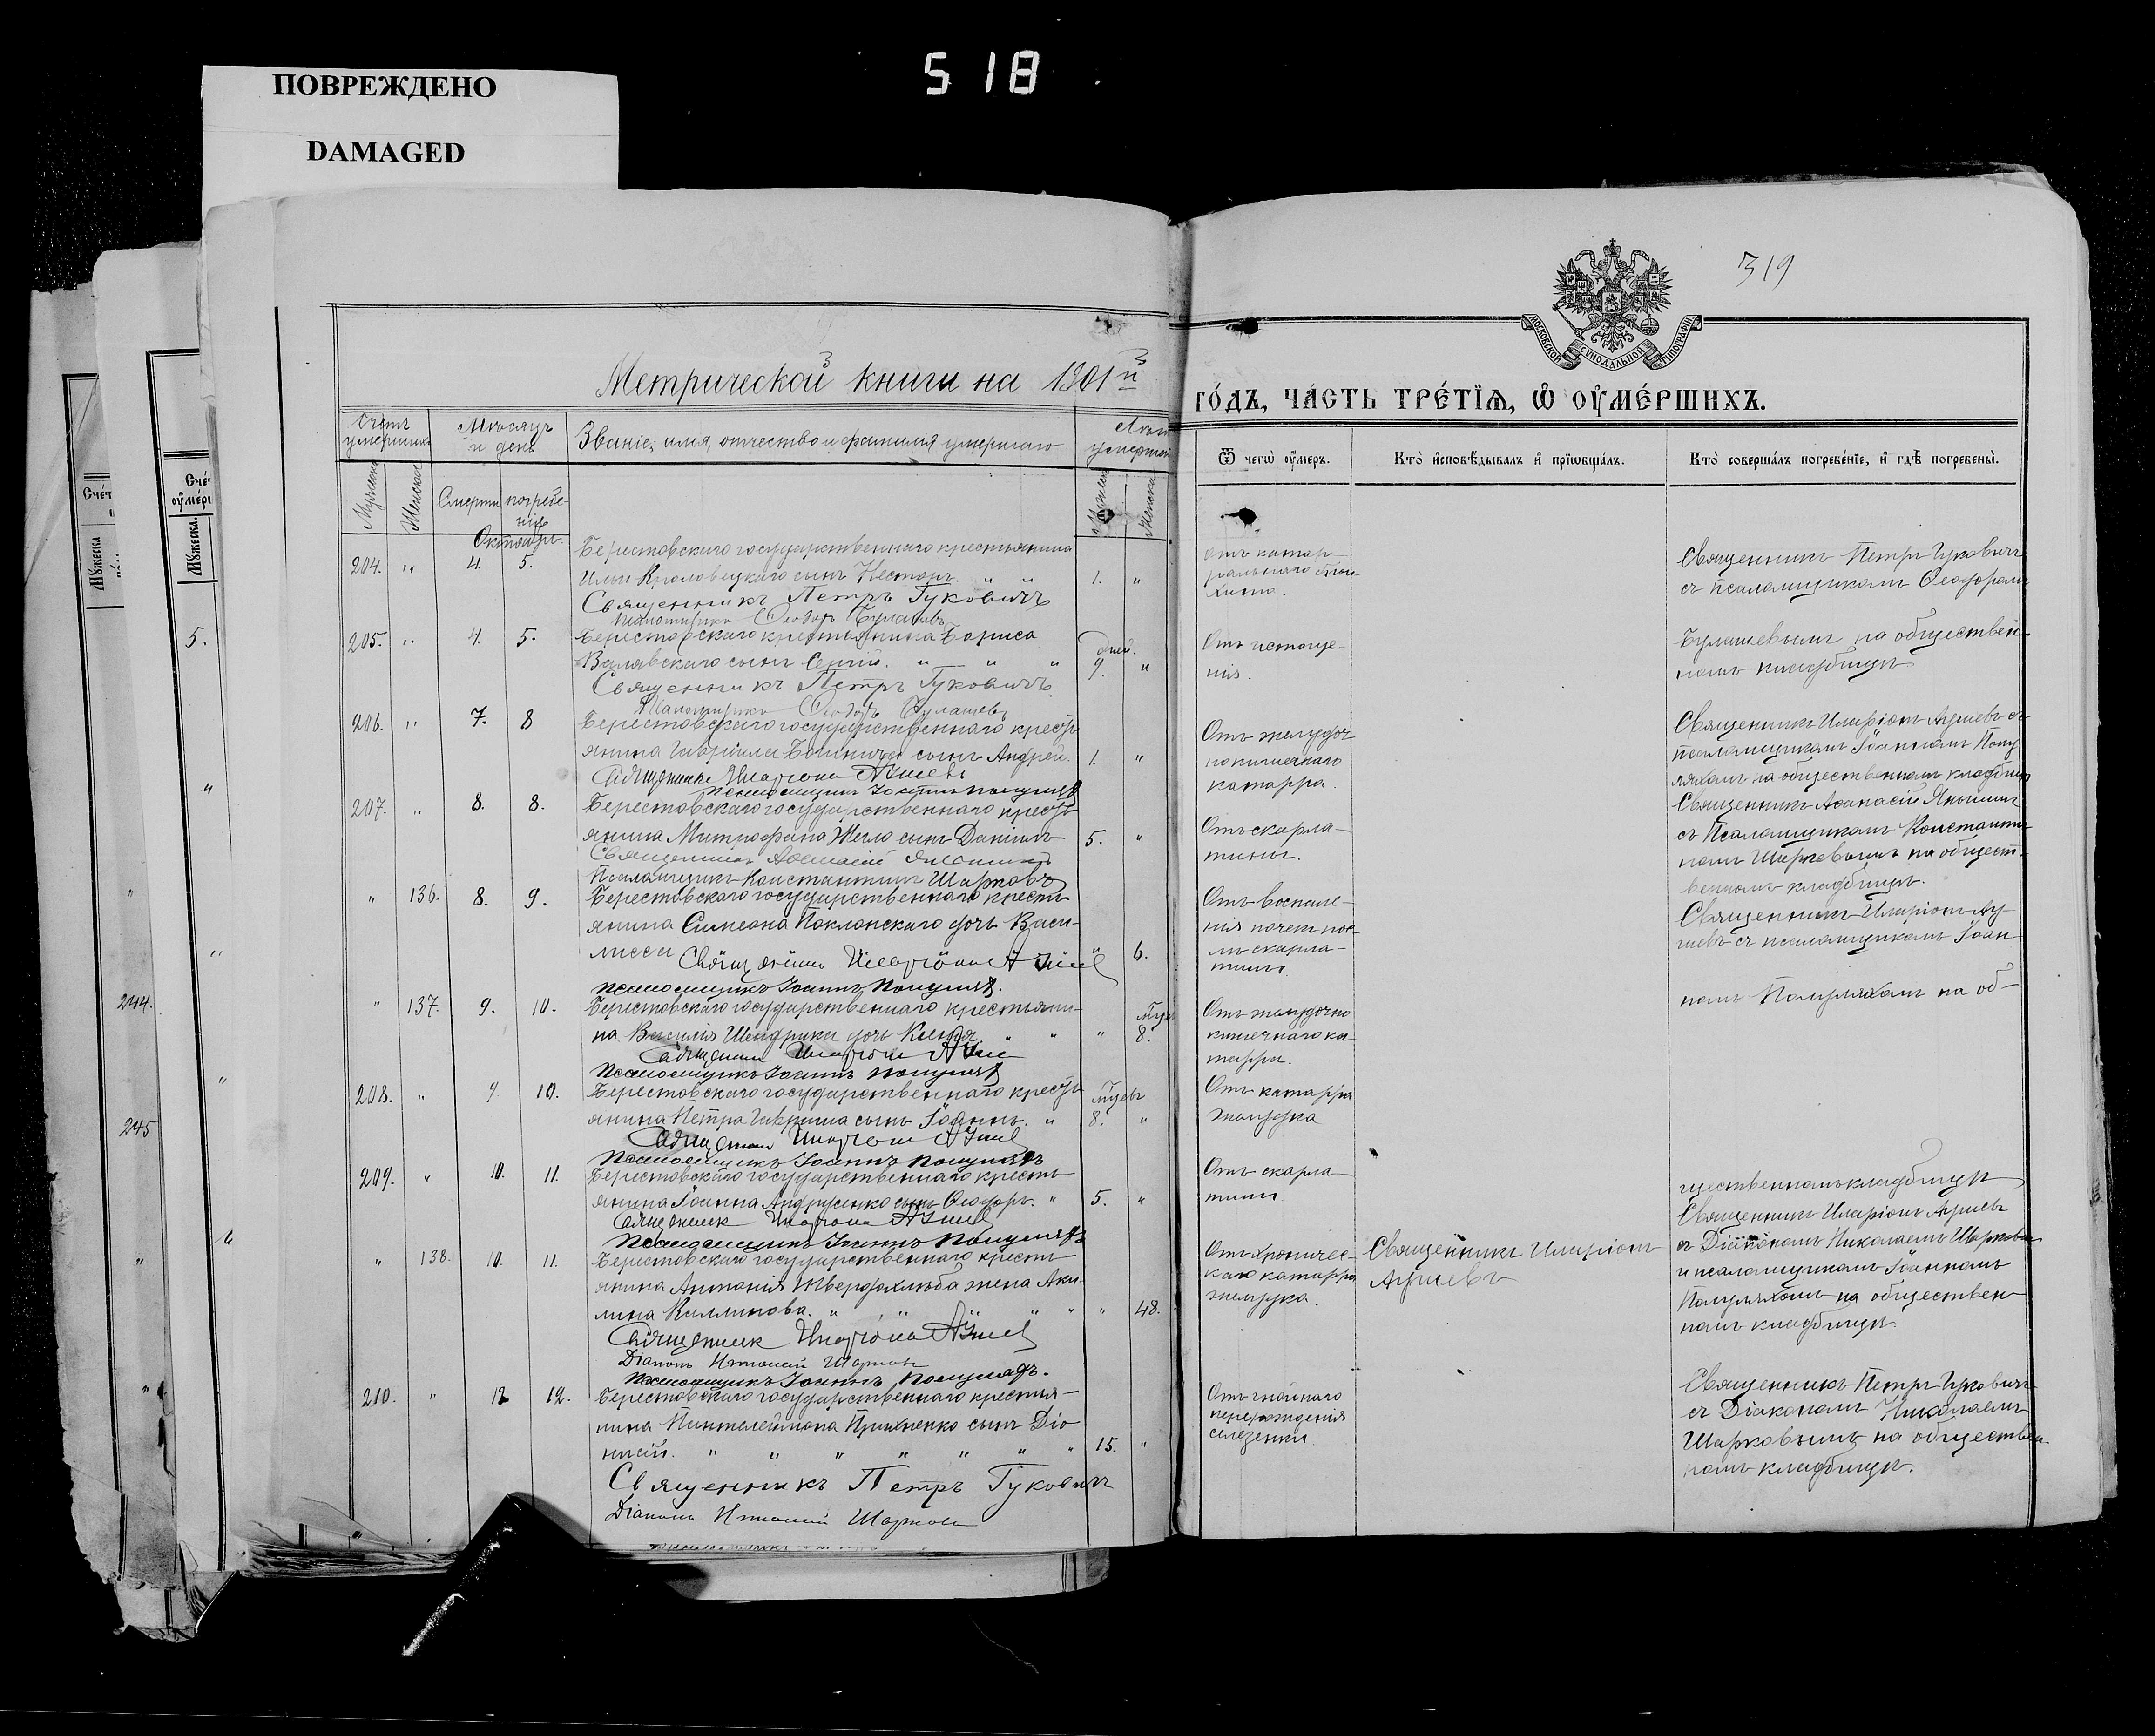 518
ПОВРЕЖДЕНО
DAMAGED
319
МОСКОВСКОЙ СѴНОДАЛЬНОЙ ТИПОГРАФІИ
Метрической книги на 1901й
го́дъ, ча́сть тре́тїѧ, ѡ҆ оу҆ме́ршихъ.
Счетъ умершихъ
Мѣсяцъ и день
Званіе, имя, отчество и фамилія умершаго
Лѣта умершаго
Ѿ чегѡ̀ оу҆́меръ.
Кто̀ и҆сповѣ́дывалъ и҆ прїѡбща́лъ.
Кто̀ соверша́лъ погребе́нїе, и҆ гдѣ̀ погребены̀.
Мужска
Женска
Смерти
погребенія
Октябрь
204. " 4. 5.
Берестовскаго государственнаго крестьянина
Ильи Кроловецкаго сынъ Несторъ. " "
1. "
Священникъ Петръ Гуковичъ
Псаломщикъ Ѳеодоръ Булашевъ
Отъ катар-
ральнаго
Священникъ Петръ Гуковичъ
съ псаломщикомъ Ѳеодоромъ
Булашевымъ на обществен-
номъ кладбищѣ
205. " 4. 5.
Берестовскаго крестьянина Бориса
Валявскаго сынъ Сергій. " " "
дней.
9. "
Священникъ Петръ Гуковичъ
Псаломщикъ Ѳеодоръ Булашевъ
Отъ истоще-
нія.
206. " 7. 8
Берестовскаго государственнаго кресть
янина Гавріила сынъ Андрей.
1. "
Священникъ Иларіонъ
Псаломщикъ Іоаннъ
Отъ желудоч-
нокишечнаго
катарра.
Священникъ Иларіонъ съ
псаломщикомъ Іоанномъ
на общественномъ кладбищѣ
207. " 8. 8.
Берестовскаго государственнаго кресть
янина Митрофана Жегло сынъ Даніилъ
5. "
Священникъ Аѳанасій
Псаломщикъ Константинъ Шарковъ
Отъ скарла-
тины.
Священникъ Аѳанасій
съ Псаломщикомъ Константи-
номъ Шарковымъ на общест-
венномъ кладбищѣ.
" 136. 8. 9.
Берестовскаго государственнаго кресть
янина Симеона Поклонскаго дочь Васи-
лисса
" 6.
Священникъ Иларіонъ
Псаломщикъ Іоаннъ
Отъ воспале-
нія почекъ пос-
лѣ скарла-
тины.
Священникъ Иларіонъ
съ псаломщикомъ Іоан-
номъ на об-
щественномъ кладбищѣ
" 137. 9. 10.
Берестовскаго государственнаго крестьяни-
на Василія Шендрика дочь " "
" 8.
Священникъ Иларіонъ
Псаломщикъ Іоаннъ
Отъ желудочно
кишечнаго ка-
тарра.
208. " 9. 10.
Берестовскаго государственнаго кресть
янина Петра Гавриша сынъ Іоаннъ. "
мѣсцевъ
8. "
Священникъ Иларіонъ
Псаломщикъ Іоаннъ
Отъ катарра
желудка
209. " 10. 11.
Берестовскаго государственнаго кресть
янина Іоанна Андрусенко сынъ Ѳеодоръ. "
5. "
Священникъ Иларіонъ
Псаломщикъ Іоаннъ
Отъ скарла-
тины
" 138. 10. 11.
Берестовскаго государственнаго кресть
янина Антонія Твердохлѣба жена Аки-
лина Каллинова. " " " "
" 48.
Священникъ Иларіонъ
Діаконъ Николай Шарковъ
Псаломщикъ Іоаннъ
Отъ хроничес-
каго катарра
желудка.
Священникъ Иларіонъ
Священникъ Иларіонъ
съ Діакономъ Николаемъ Шарковымъ
и псаломщикомъ Іоанномъ
на обществен-
номъ кладбищѣ
210. " 12 12.
Берестовскаго государственнаго крестья-
нина Пантелеймона Прихненко сынъ Діо
нисій. " " " " " " "
15. "
Священникъ Петръ Гуковичъ
Діаконъ Николай Шарковъ
Отъ гнойнаго
перерожденія
селезенки.
Священникъ Петръ Гуковичъ
съ Діакономъ Николаемъ
Шарковымъ на обществен-
номъ кладбищѣ.
5.
244.
245